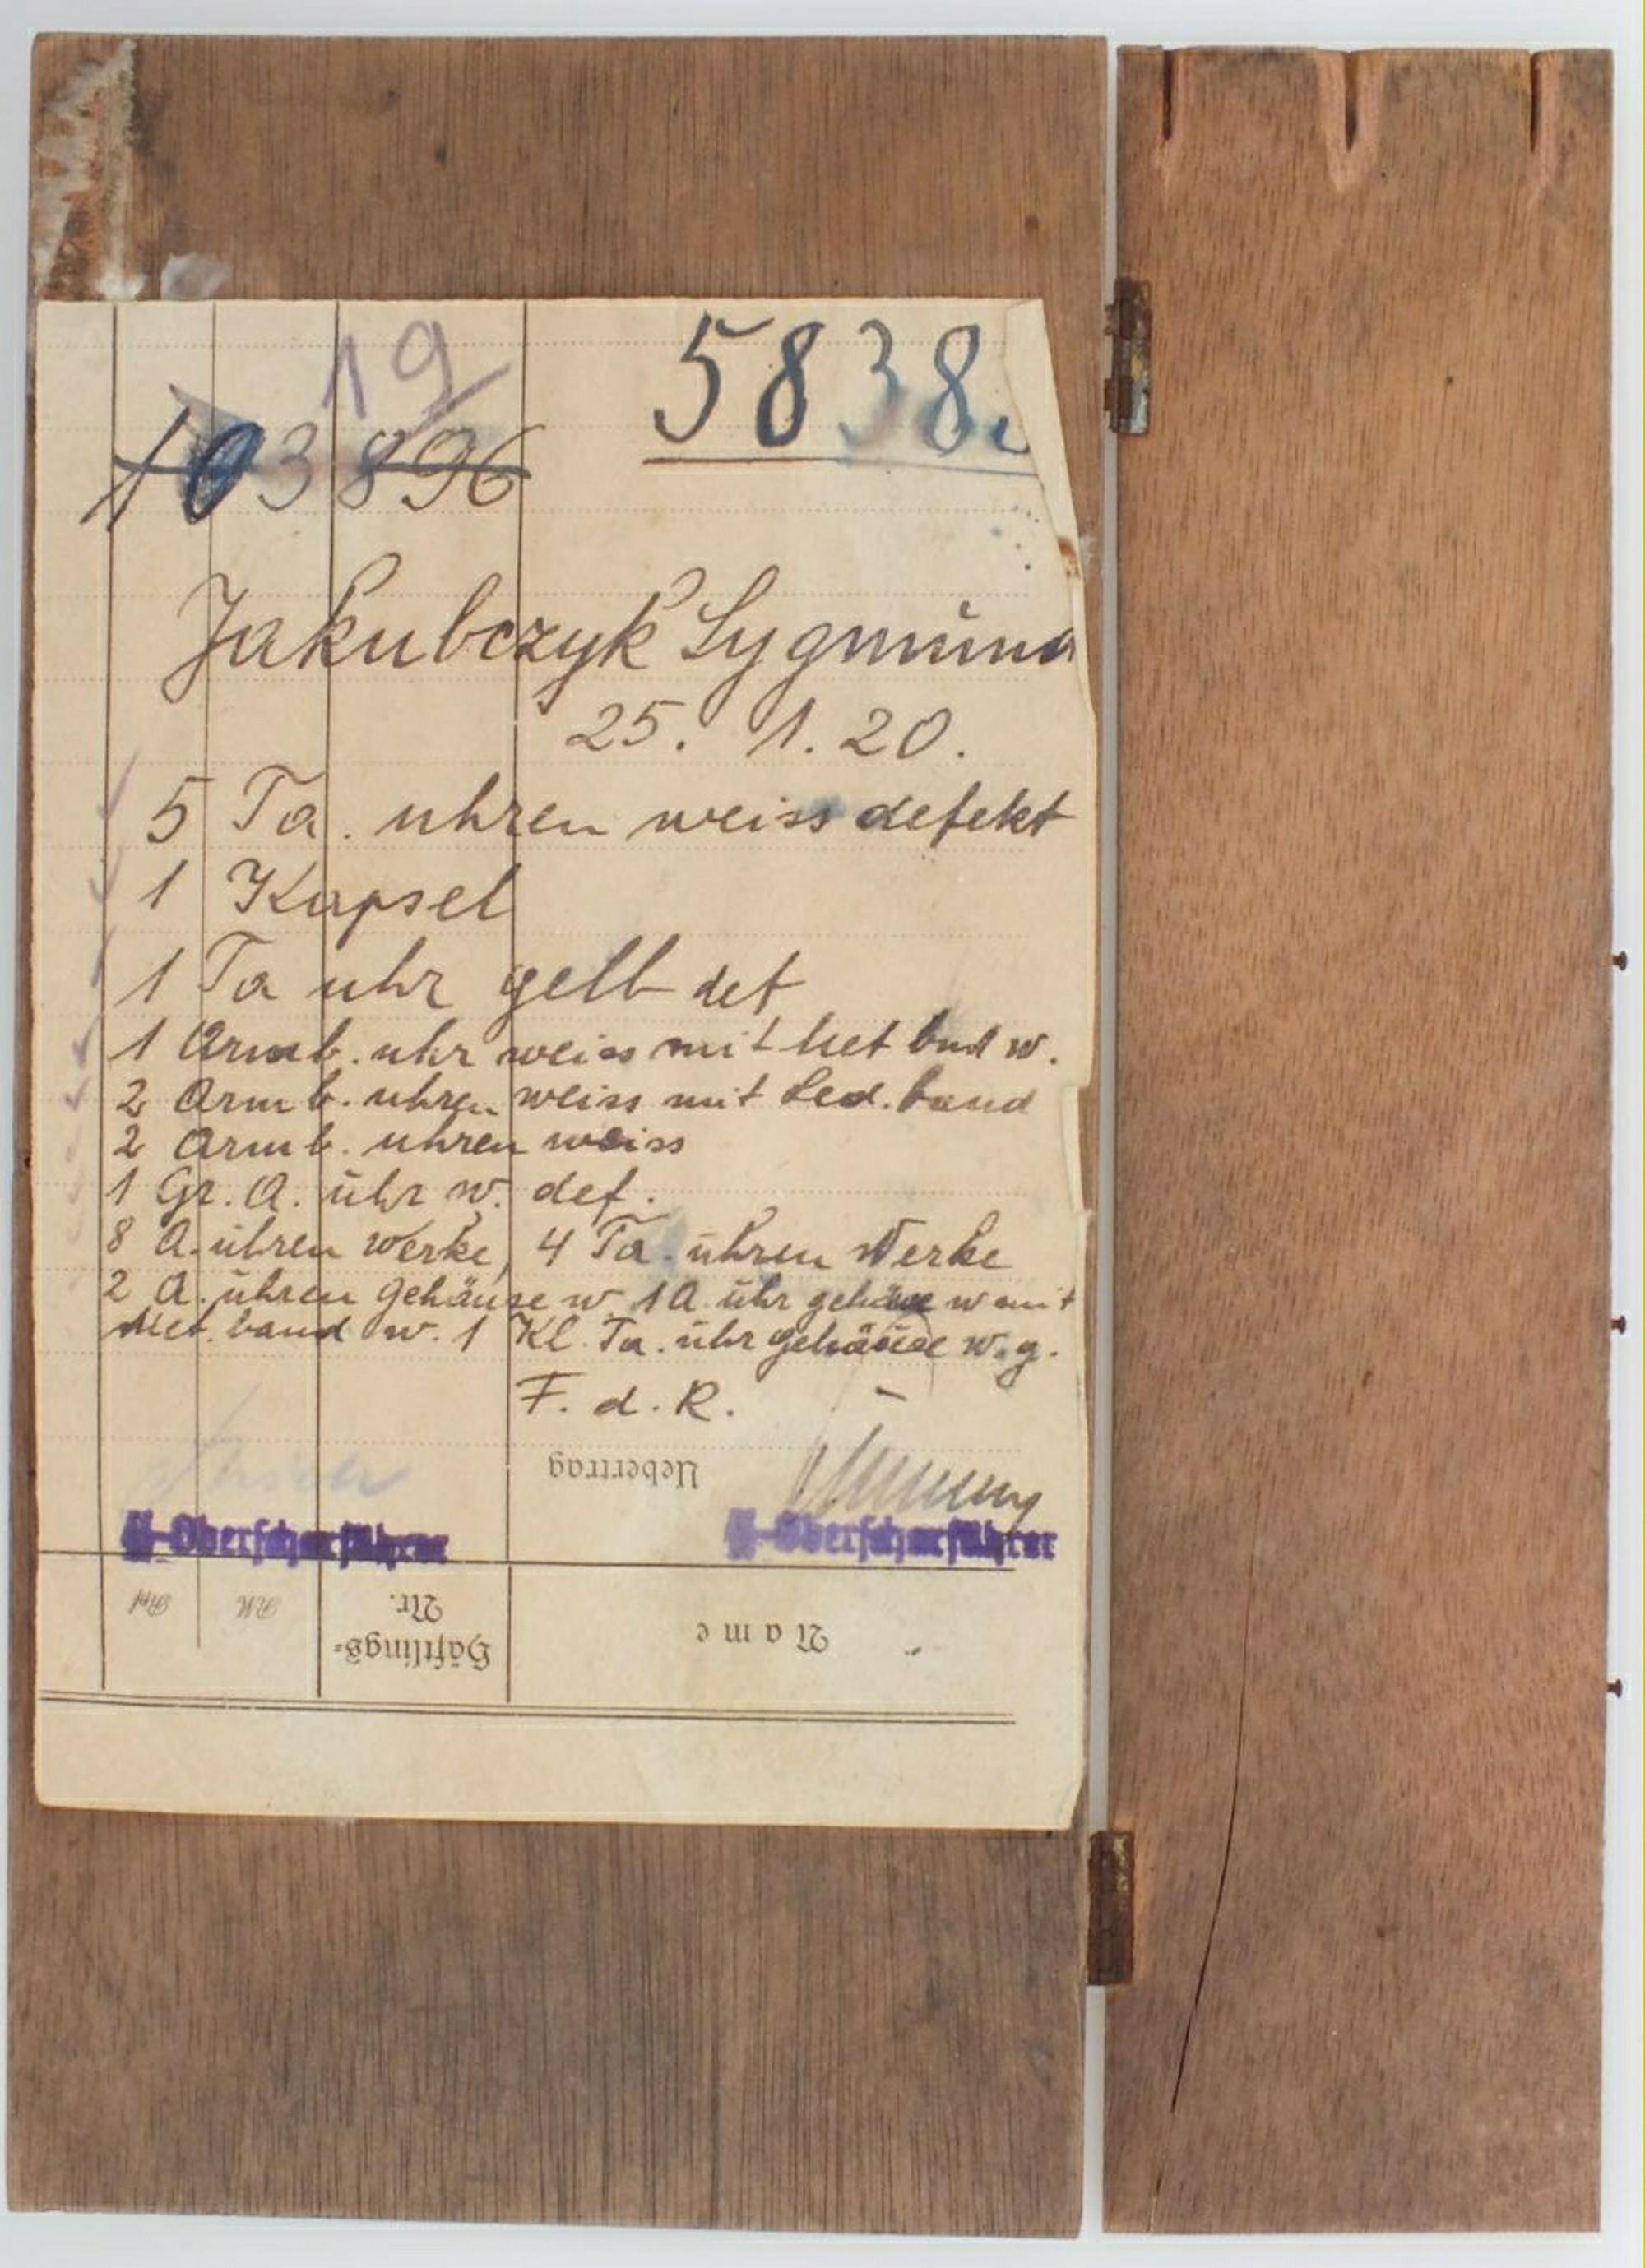 19
5838
103896
Jakubczyk Zygmund
25. 1. 20.
5 Ta. uhren weiss defekt
1 Kapsel
1 Ta uhr gelb def
1 Armb. uhr weiss mit Met band w.
2 Armb. uhren weiss mit Led. band
2 Armb. uhren weiss
1 Gr. A. uhr w. def.
8 A. uhren Werke, 4 Ta. uhren Werke
2 A. uhren gehäuse w 1 A. uhr gehäuse w mit
Met. band w. 1 Kl. Ta. uhr gehäuse w. g.
F. d. R.
Uebertrag
SS-Oberscharführer SS-Oberscharführer
RM Häftlings- Nr. Name